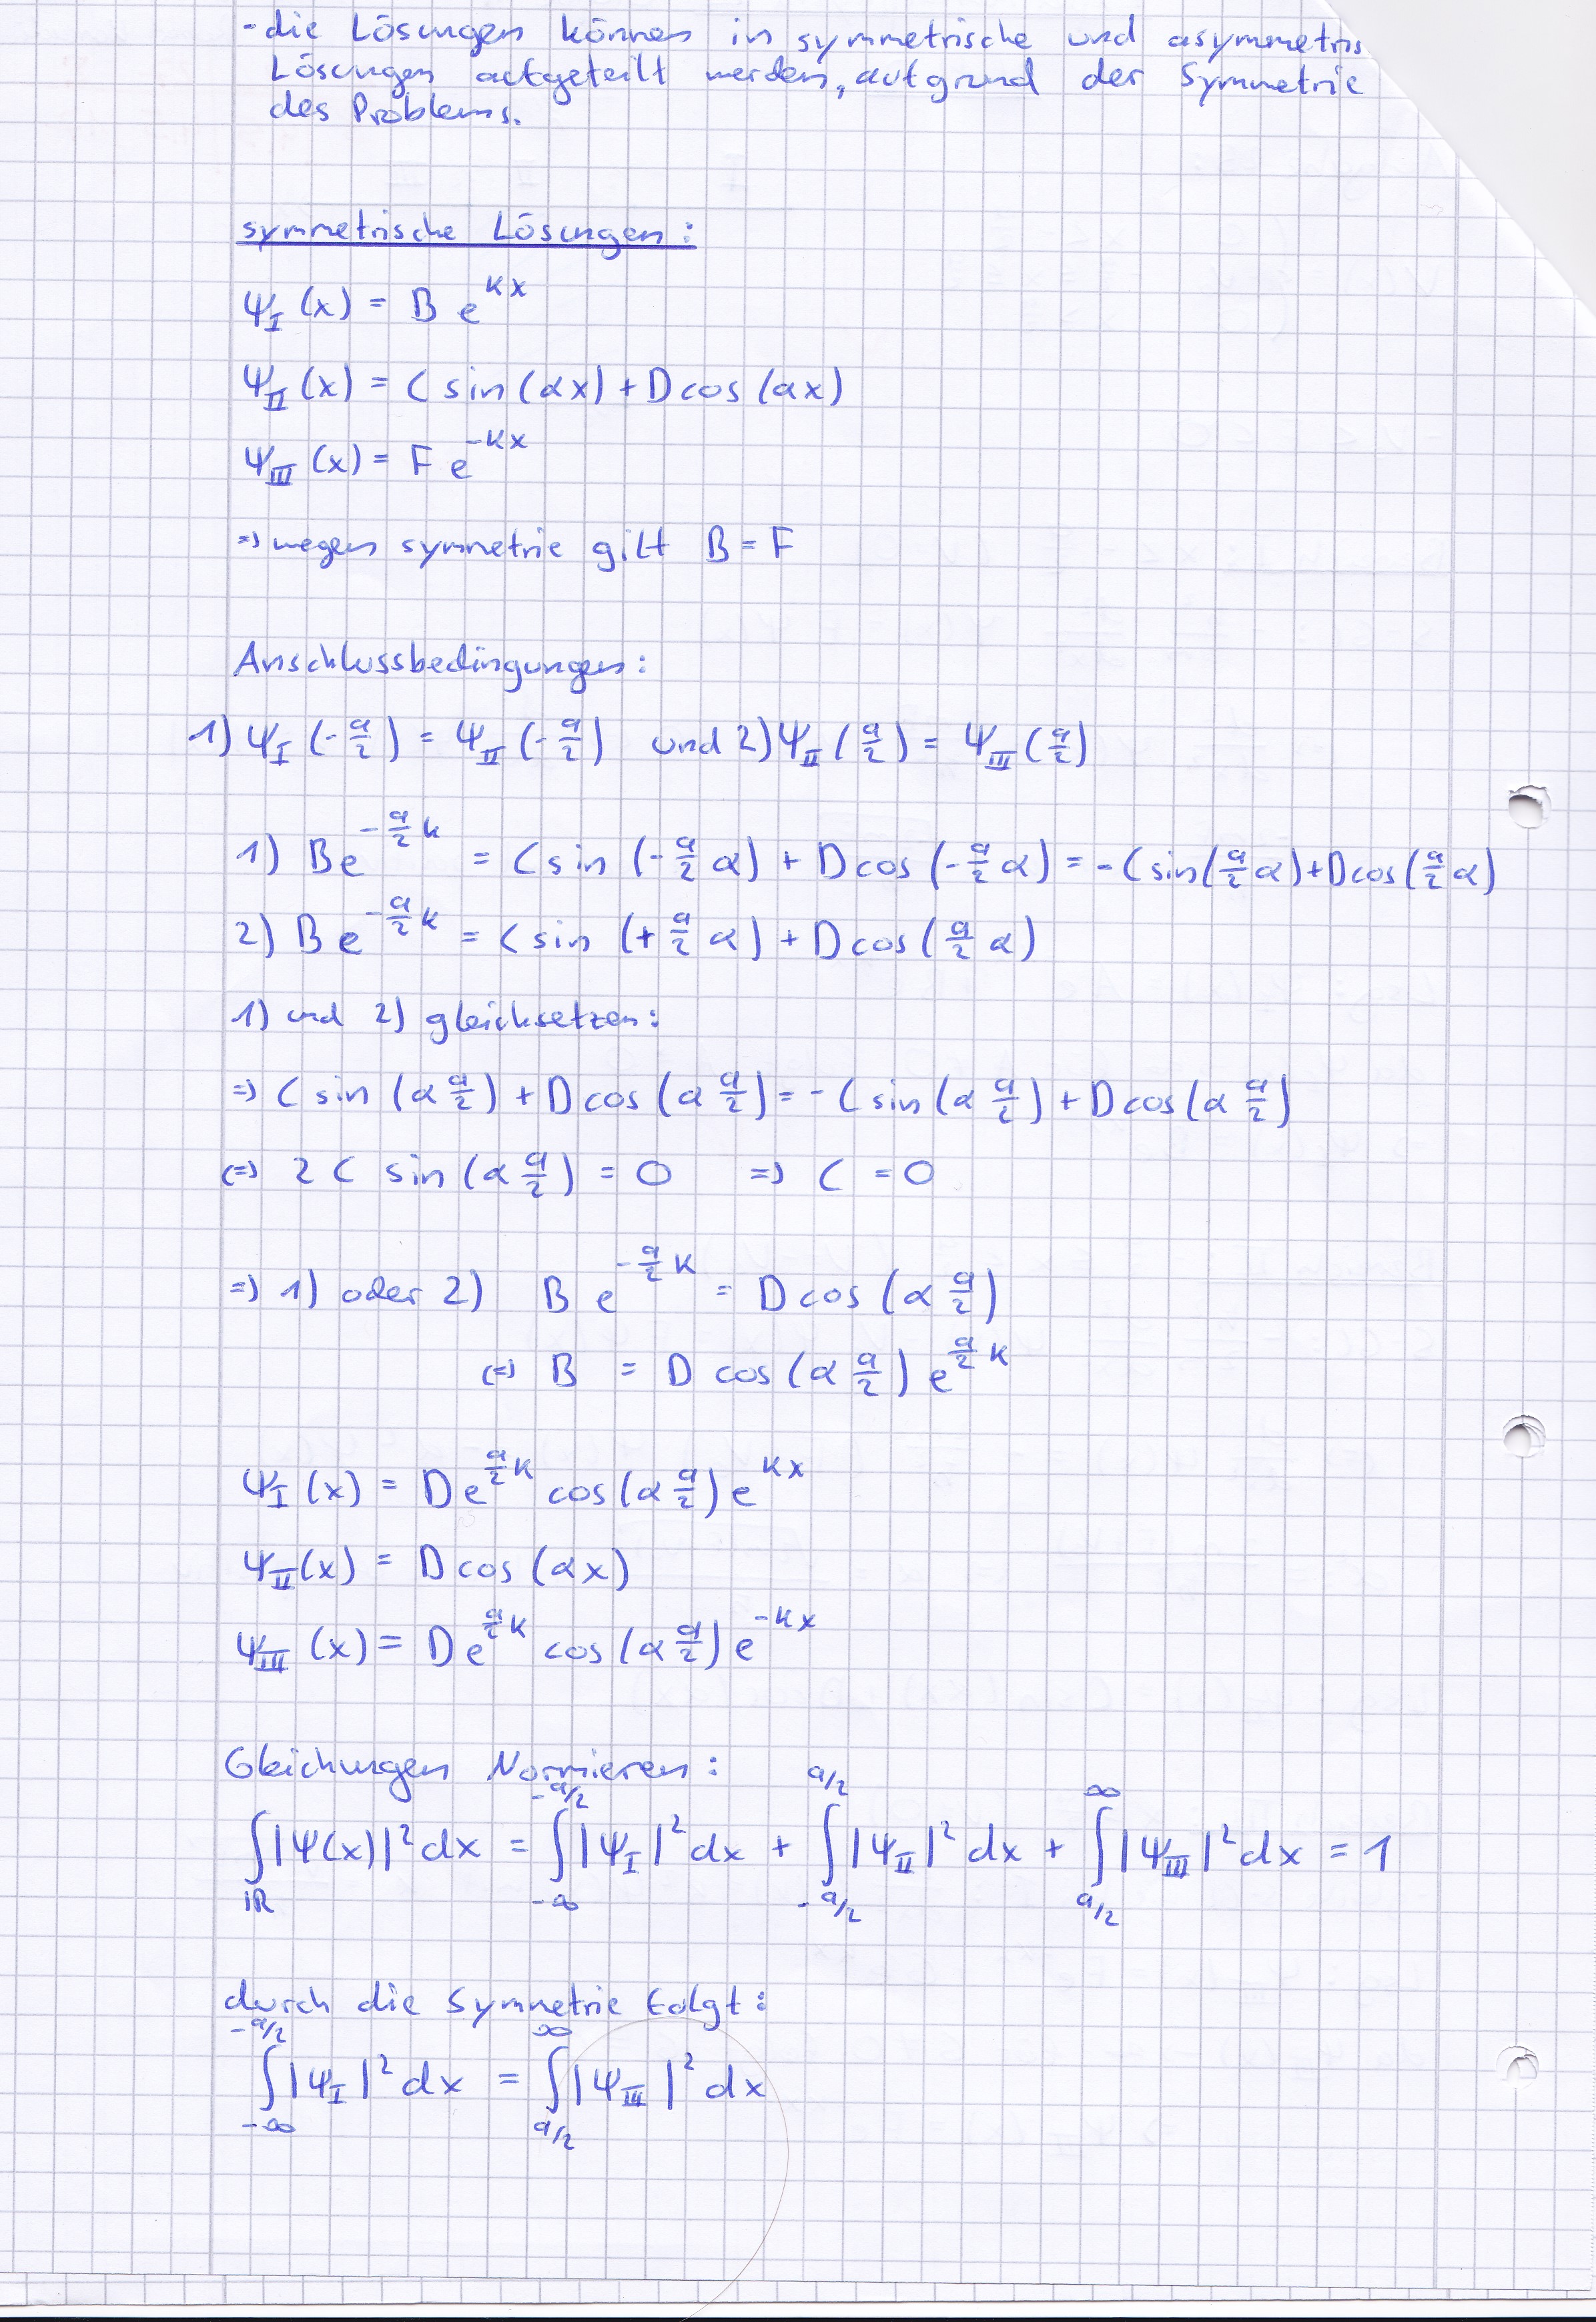 - die Lösungen können in symmetrische und asymmetris
Lösungen aufgeteilt werden, aufgrund der Symmetrie
des Problems.
symmetrische Lösungen:
Ψ_I (x) = B e^{kx}
Ψ_II (x) = C sin(αx) + D cos(αx)
Ψ_III (x) = F e^{-kx}
=> wegen symmetrie gilt B = F
Anschlussbedingungen:
1) Ψ_I (-a/2) = Ψ_II (-a/2) und 2) Ψ_II (a/2) = Ψ_III (a/2)
1) B e^{-a/2 k} = C sin (-a/2 α) + D cos (-a/2 α) = - C sin(a/2 α) + D cos(a/2 α)
2) B e^{-a/2 k} = C sin (+ a/2 α) + D cos (a/2 α)
1) und 2) gleichsetzen:
=> C sin (α a/2) + D cos (α a/2) = - C sin (α a/2) + D cos (α a/2)
<=> 2 C sin (α a/2) = 0 => C = 0
=> 1) oder 2) B e^{-a/2 k} = D cos (α a/2)
<=> B = D cos (α a/2) e^{a/2 k}
Ψ_I (x) = D e^{a/2 k} cos(α a/2) e^{kx}
Ψ_II (x) = D cos (αx)
Ψ_III (x) = D e^{a/2 k} cos (α a/2) e^{-kx}
Gleichungen Normieren:
∫_{ℝ} |Ψ(x)|² dx = ∫_{-∞}^{-a/2} |Ψ_I|² dx + ∫_{-a/2}^{a/2} |Ψ_II|² dx + ∫_{a/2}^{∞} |Ψ_III|² dx = 1
durch die Symmetrie folgt:
∫_{-∞}^{-a/2} |Ψ_I|² dx = ∫_{a/2}^{∞} |Ψ_III|² dx